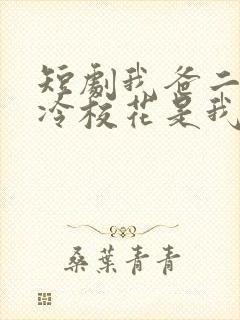 短劇我爸二
冷校花是我
桑葉青青